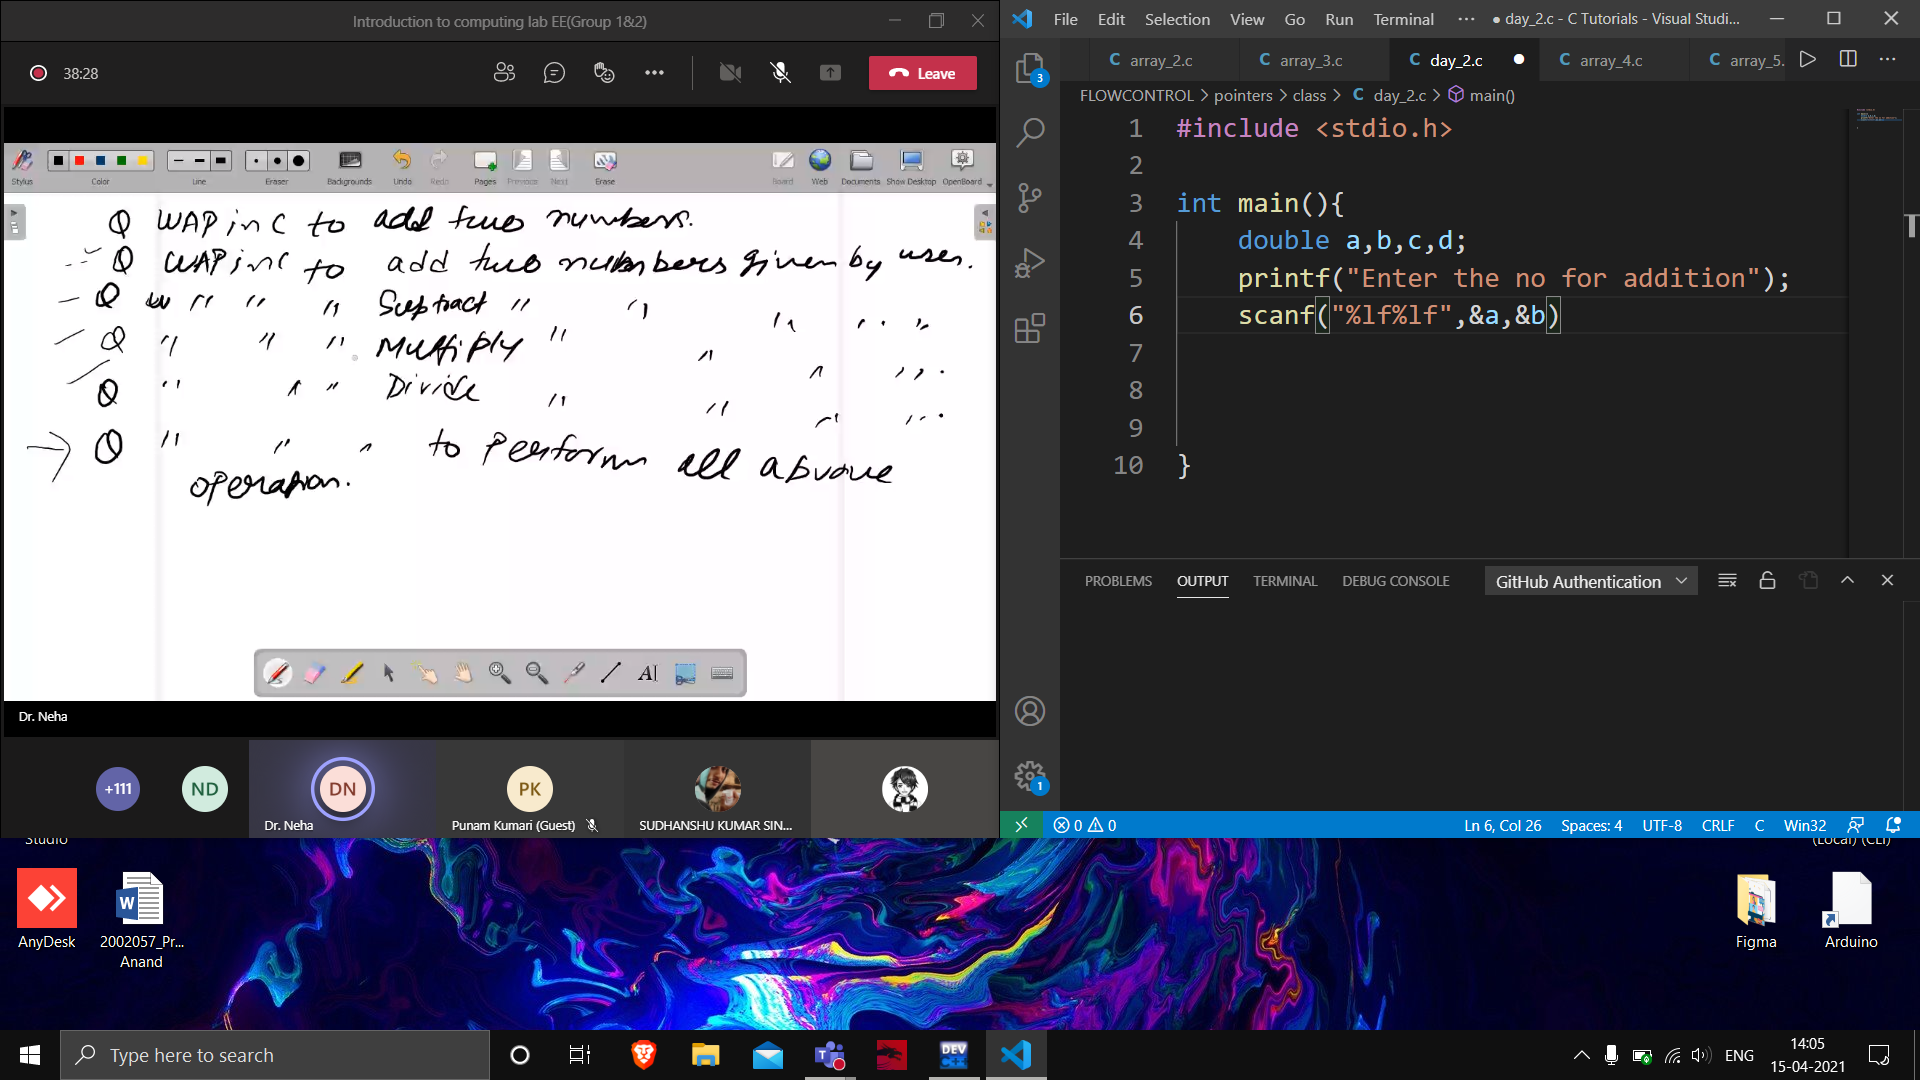 Introduction to computing lab EE(Group 1&2)
38:28
Leave
Stylus
Color
Line
Eraser
Backgrounds
Undo
Redo
Pages
Previous
Next
Erase
Board
Web
Documents
Show Desktop
OpenBoard
Q WAP in C to add two numbers.
Q WAP in C to add two numbers given by user.
Q W " " " Subtract " " " " "
Q " " " Multiply " " " " "
Q " " " Divide " " " " "
Q " " " to Perform all above
operation.
Dr. Neha
+111
ND
DN
Dr. Neha
PK
Punam Kumari (Guest)
SUDHANSHU KUMAR SIN...
File Edit Selection View Go Run Terminal ··· ● day_2.c - C Tutorials - Visual Studi...
C array_2.c
C array_3.c
C day_2.c
C array_4.c
C array_5.
FLOWCONTROL > pointers > class > C day_2.c > main()
3
1 #include <stdio.h>
2
3 int main(){
4 double a,b,c,d;
5 printf("Enter the no for addition");
6 scanf("%lf%lf",&a,&b)
7
8
9
10 }
PROBLEMS OUTPUT TERMINAL DEBUG CONSOLE GitHub Authentication
1
0 0 Ln 6, Col 26 Spaces: 4 UTF-8 CRLF C Win32
Studio
(Local) (CLI)
AnyDesk
2002057_Pr...
Anand
Figma
Arduino
Type here to search
DEV
C++
ENG
14:05
15-04-2021